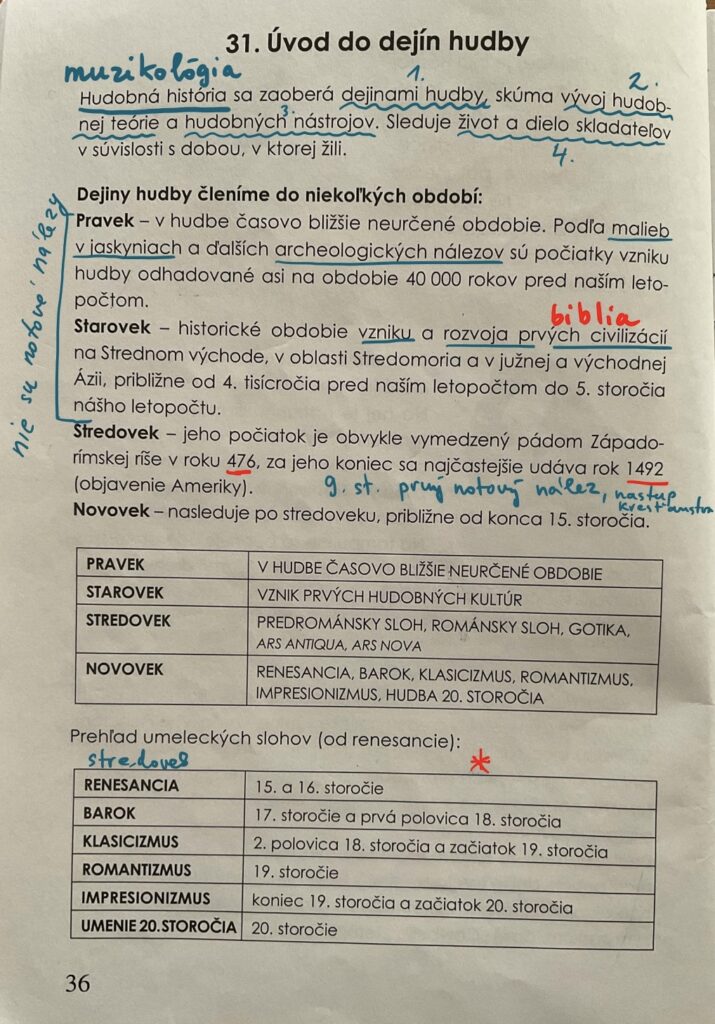 31. Úvod do dejín hudby
muzikológia
1.
2.
Hudobná história sa zaoberá dejinami hudby, skúma vývoj hudob-
3.
nej teórie a hudobných nástrojov. Sleduje život a dielo skladateľov
v súvislosti s dobou, v ktorej žili.
4.
Dejiny hudby členíme do niekoľkých období:
nie sú notové nálezy
Pravek – v hudbe časovo bližšie neurčené obdobie. Podľa malieb
v jaskyniach a ďalších archeologických nálezov sú počiatky vzniku
hudby odhadované asi na obdobie 40 000 rokov pred naším leto-
počtom.
biblia
Starovek – historické obdobie vzniku a rozvoja prvých civilizácií
na Strednom východe, v oblasti Stredomoria a v južnej a východnej
Ázii, približne od 4. tisícročia pred naším letopočtom do 5. storočia
nášho letopočtu.
Stredovek – jeho počiatok je obvykle vymedzený pádom Západo-
rímskej ríše v roku 476, za jeho koniec sa najčastejšie udáva rok 1492
(objavenie Ameriky).
9. st. prvý notový nález, nástup
kresťanstva
Novovek – nasleduje po stredoveku, približne od konca 15. storočia.
PRAVEK V HUDBE ČASOVO BLIŽŠIE NEURČENÉ OBDOBIE
STAROVEK VZNIK PRVÝCH HUDOBNÝCH KULTÚR
STREDOVEK PREDROMÁNSKY SLOH, ROMÁNSKY SLOH, GOTIKA,
ARS ANTIQUA, ARS NOVA
NOVOVEK RENESANCIA, BAROK, KLASICIZMUS, ROMANTIZMUS,
IMPRESIONIZMUS, HUDBA 20. STOROČIA
Prehľad umeleckých slohov (od renesancie):
*
RENESANCIA 15. a 16. storočie
BAROK 17. storočie a prvá polovica 18. storočia
KLASICIZMUS 2. polovica 18. storočia a začiatok 19. storočia
ROMANTIZMUS 19. storočie
IMPRESIONIZMUS koniec 19. storočia a začiatok 20. storočia
UMENIE 20. STOROČIA 20. storočie
36